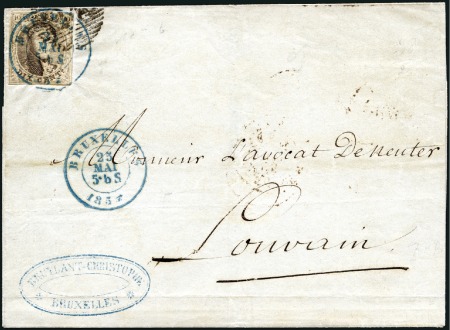 BRUXELLES
23
MAI
5·S
185
Monsieur L'avocat De neuter
Louvain
BRUYLANT-CHRISTOPHE
BRUXELLES